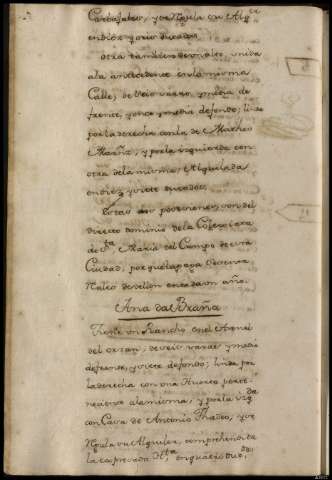 y se Regula su Alq.er
en diez y ocho ducados
Otra tambien de un alto, unida
a la antecedente en la misma
Calle, de seis varas y media de
frente, y once y media de fondo; linda
por la derecha con la de Matheo
Mariño, y por la izquierda con
otra de la misma, Alquilada
en diez y siete ducados.
Estas dos posesiones son del
directo dominio de la Colegiata
de S.ta Maria del Campo de esta
Ciudad, por que la paga
Reales de vellon en cada un año
Ana da Braña
Tiene un Rancho en el
del orzan, de seis varas y media
de frente, y siete de fondo; linda por
la derecha con una Huerta perte-
neciente a la misma, y por la izq.da
con Casa de Antonio Thadeo, y se
Regula su Alquiler, comprehendida
la expresada H.ta en quatro duc.dos